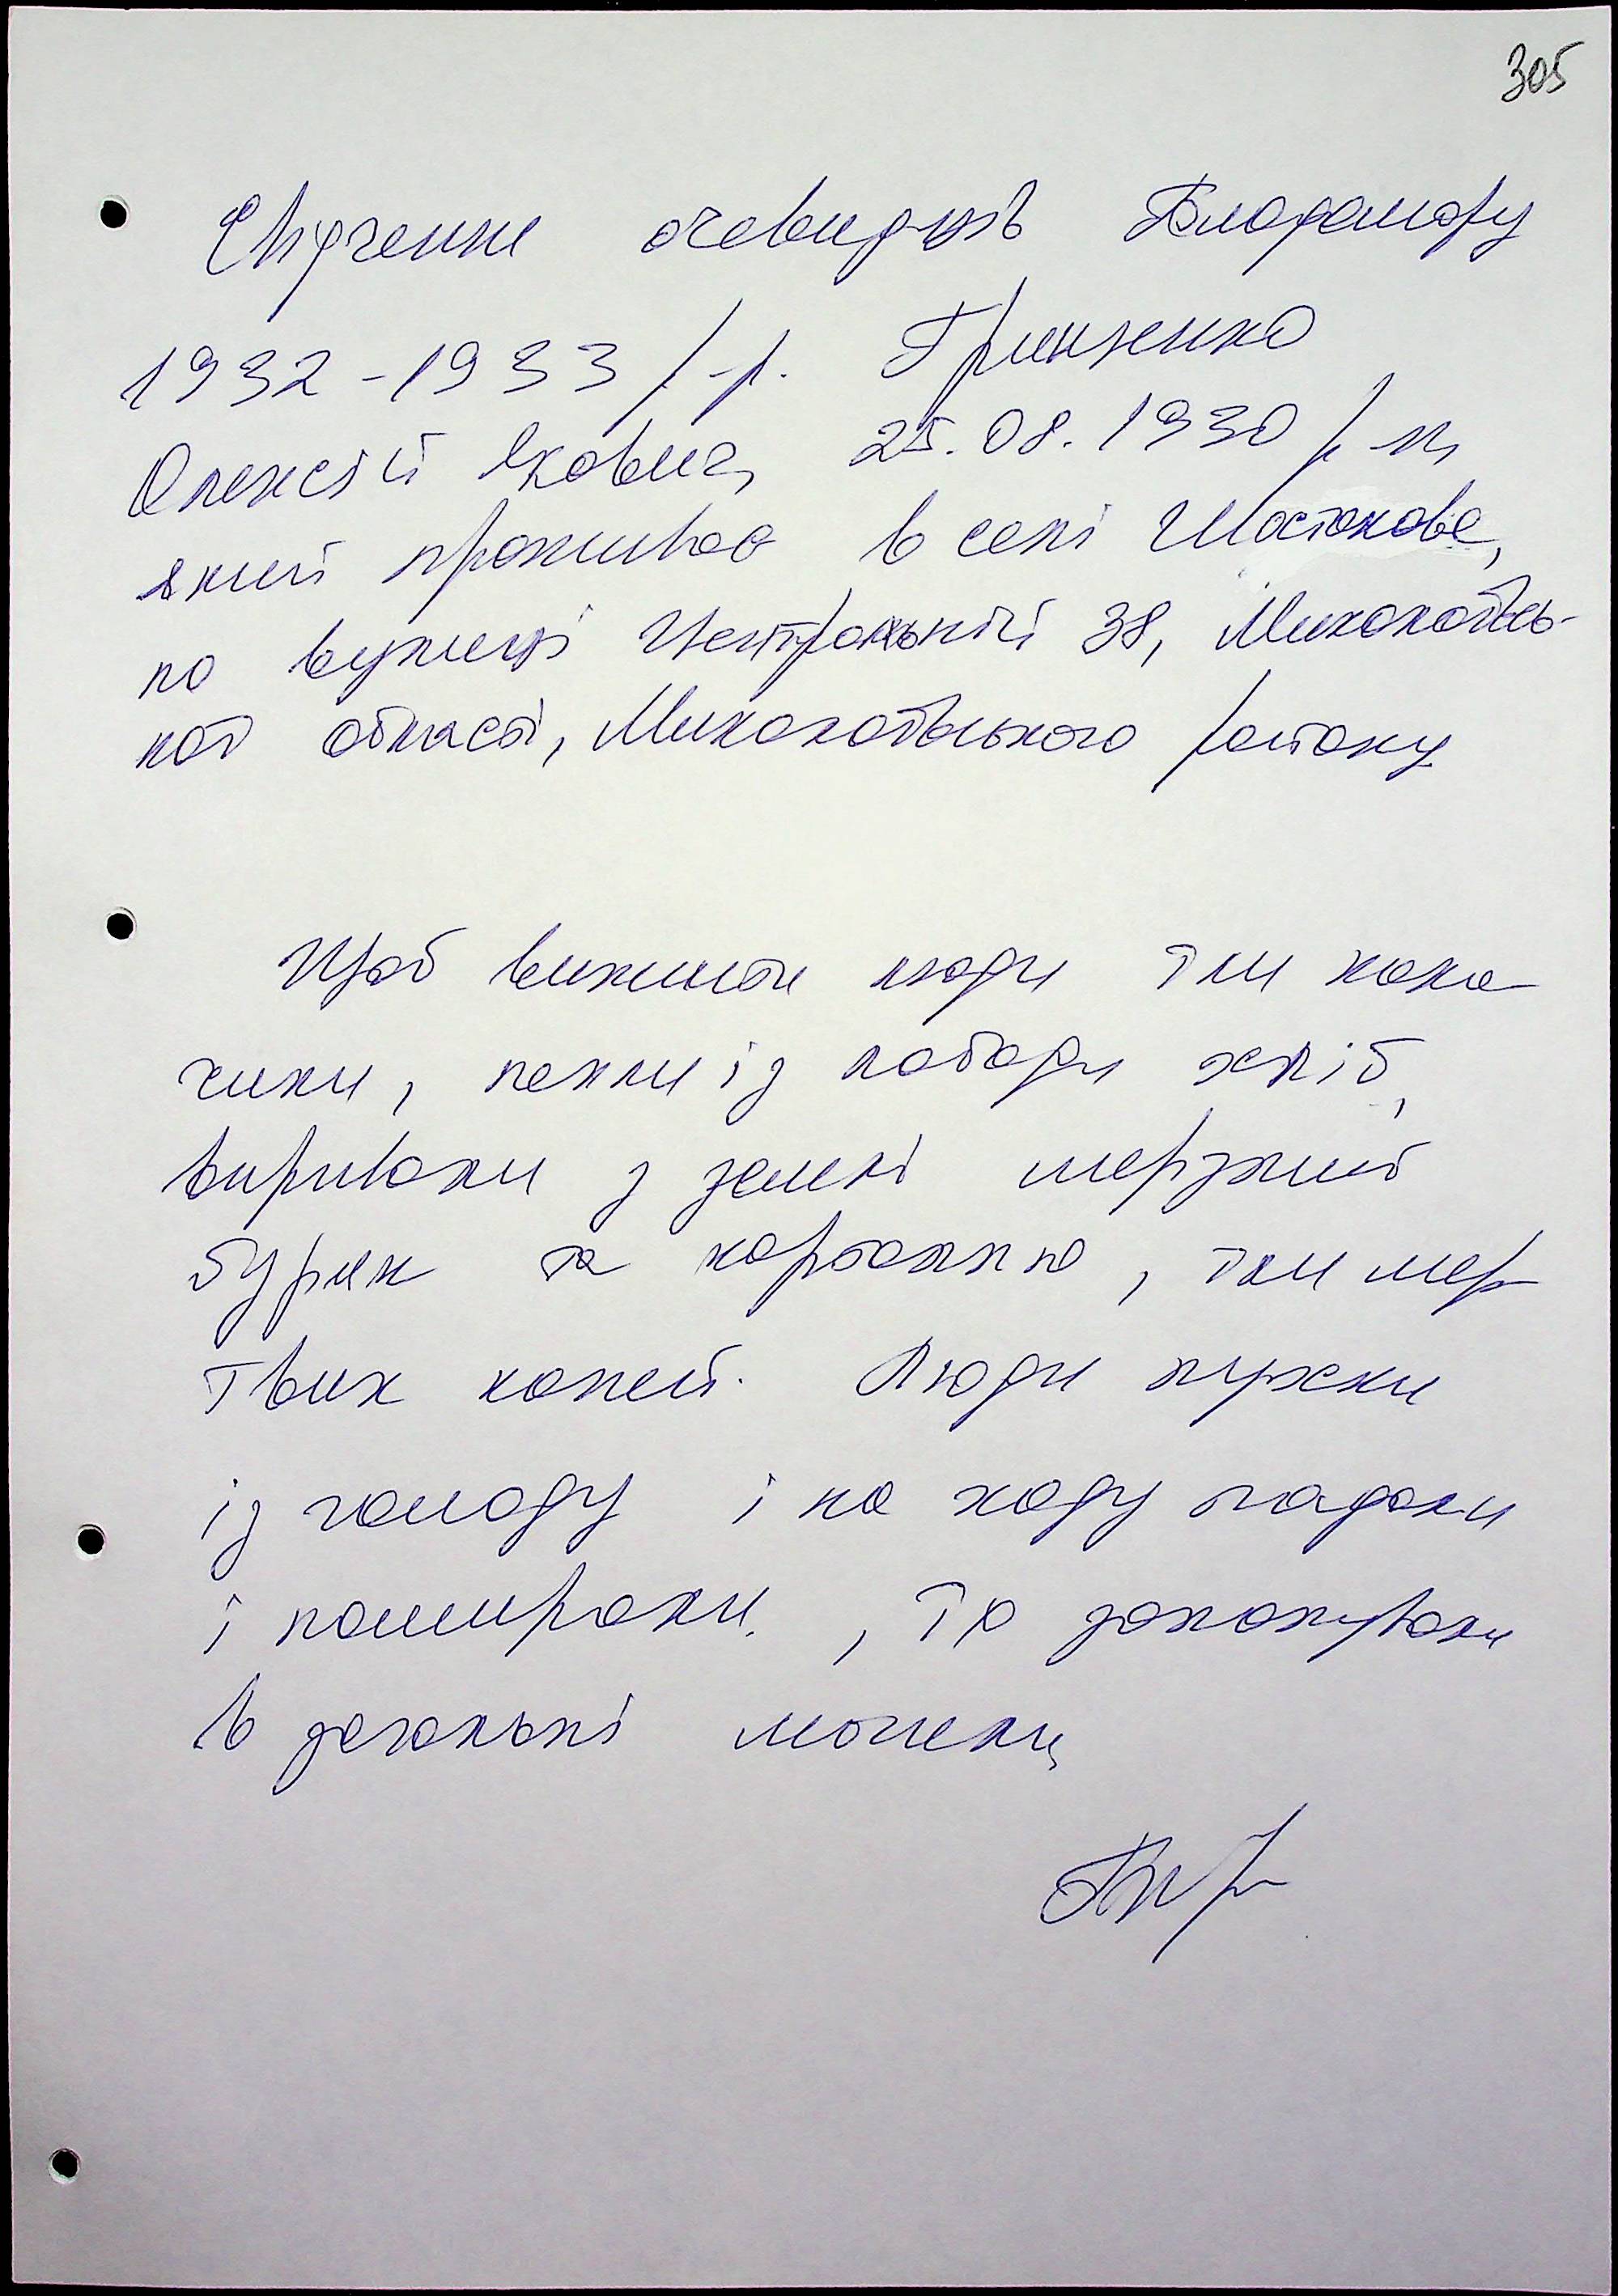 305
Свідчення очевидців Голодомору
1932-1933 р.р. Гринженко
Олексій Якович, 25.08.1930 р. н,
який проживає в селі Шостакове,
по вулиці Центральній 38, Миколаївсь-
кої області, Миколаївського району
Щоб вижити люди їли кала
чики, пекли із лободи хліб,
виривали з землі мерзлий
буряк та картоплю, їли мер
твих коней. Люди пухли
із голоду і на ходу падали
і помирали, їх закопували
в загальні могили,